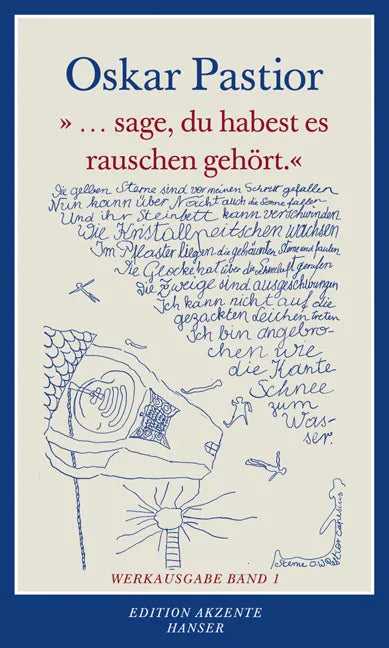 Oskar Pastior
» … sage, du habest es
rauschen gehört.«
Die gelben Sterne sind vor meinen Schritt gefallen
Nun kann über Nacht auch die Sonne fallen
Und ihr Steinbett kann verschwinden
Wie Kristallpeitschen wachsen
Im Pflaster liegen die gebräunten Sterne und faulen
Die Glocke hat über die gerufen
Die Zweige sind ausgeschwungen
Ich kann nicht auf die
gezackten Leichen treten
Ich bin angebro-
chen wie
die Kante
Schnee
zum
Was-
ser.
Sterne O.W.
WERKAUSGABE BAND 1
EDITION AKZENTE
HANSER